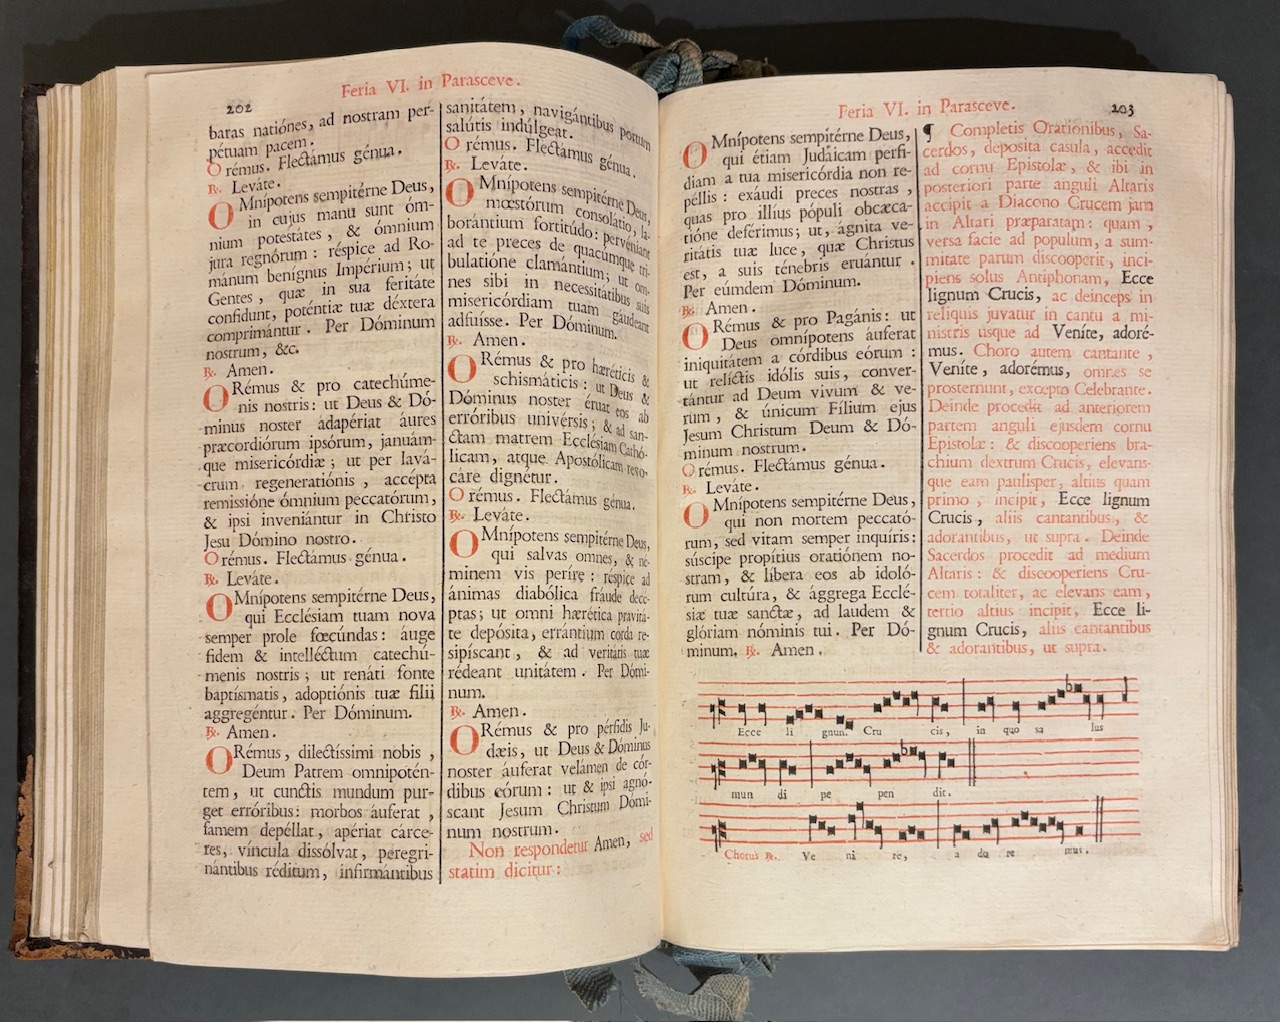 Feria VI. in Parasceve.
202
baras natiónes, ad nostram per-
pétuam pacem.
Orémus. Flectámus génua.
℟. Leváte.
OMnípotens sempitérne Deus,
in cujus manu sunt óm-
nium potestátes, & ómnium
jura regnórum: réspice ad Ro-
mánum benígnus Impérium; ut
Gentes, quæ in sua feritáte
confidunt, poténtiæ tuæ déxtera
comprimántur. Per Dóminum
nostrum, &c.
℟. Amen.
ORémus & pro catechúme-
nis nostris: ut Deus & Dó-
minus noster ádapériat áures
præcordiórum ipsórum, januám-
que misericórdiæ; ut per lavá-
crum regeneratiónis, accépta
remissióne ómnium peccatórum,
& ipsi inveniántur in Christo
Jesu Dómino nostro.
Orémus. Flectámus génua.
℟. Leváte.
OMnípotens sempitérne Deus,
qui Ecclésiam tuam nova
semper prole fœcúndas: áuge
fidem & intelléctum catechú-
menis nostris; ut renáti fonte
baptísmatis, adoptiónis tuæ filii
aggregéntur. Per Dóminum.
℟. Amen.
ORémus, dilectíssimi nobis,
Deum Patrem omnipotén-
tem, ut cunctis mundum pur-
get erróribus: morbos áuferat,
famem depéllat, apériat cárce-
res, víncula dissólvat, peregri-
nántibus réditum, infirmántibus
sanitátem, navigántibus portum
salútis indúlgeat.
Orémus. Flectámus génua.
℟. Leváte.
OMnípotens sempitérne Deus,
mœstórum consolatio, la-
borántium fortitúdo: pervéniant
ad te preces de quacúmque tri-
bulatióne clamántium; ut om-
nes sibi in necessitátibus suis
misericórdiam tuam gáudeant
adfuísse. Per Dóminum.
℟. Amen.
ORémus & pro hæréticis &
schismáticis: ut Deus &
Dóminus noster éruat eos ab
erróribus univérsis; & ad san-
ctam matrem Ecclésiam Cathó-
licam, atque Apostólicam revo-
cáre dignétur.
Orémus. Flectámus génua.
℟. Leváte.
OMnípotens sempitérne Deus,
qui salvas omnes, & né-
minem vis períre: réspice ad
ánimas diabólica fráude decé-
ptas; ut omni hærética pravitá-
te depósita, errántium corda re-
sipíscant, & ad veritátis tuæ
rédeant unitátem. Per Dómi-
num.
℟. Amen.
ORémus & pro pérfidis Ju-
dæis, ut Deus & Dóminus
noster áuferat velámen de cór-
dibus eórum: ut & ipsi agnó-
scant Jesum Christum Dómi-
num nostrum.
Non respondetur Amen, sed
statim dicitur:
Feria VI. in Parasceve.
203
OMnípotens sempitérne Deus,
qui étiam Judáicam perfi-
diam a tua misericórdia non re-
péllis: exáudi preces nostras,
quas pro illíus pópuli obcæca-
tióne deférimus; ut, agnita ve-
ritátis tuæ luce, quæ Christus
est, a suis ténebris eruántur.
Per eúmdem Dóminum.
℟. Amen.
ORémus & pro Pagánis: ut
Deus omnípotens áuferat
iniquitátem a córdibus eórum:
ut relíctis idólis suis, conver-
tántur ad Deum vivum & ve-
rum, & únicum Fílium ejus
Jesum Christum Deum & Dó-
minum nostrum.
Orémus. Flectámus génua.
℟. Leváte.
OMnípotens sempitérne Deus,
qui non mortem peccató-
rum, sed vitam semper inquíris:
súscipe propítius oratiónem no-
stram, & líbera eos ab idoló-
rum cultúra, & ággrega Ecclé-
siæ tuæ sanctæ, ad laudem &
glóriam nóminis tui. Per Dó-
minum. ℟. Amen.
¶ Completis Orationibus, Sa-
cerdos, deposita casula, accedit
ad cornu Epistolæ, & ibi in
posteriori parte anguli Altaris
accipit a Diacono Crucem jam
in Altari præparatam: quam,
versa facie ad populum, a sum-
mitate parum discooperit, inci-
piens solus Antiphonam, Ecce
lignum Crucis, ac deinceps in
reliquis juvatur in cantu a mi-
nistris usque ad Veníte, adoré-
mus. Choro autem cantante,
Veníte, adorémus, omnes se
prosternunt, excepto Celebrante.
Deinde procedit ad anteriorem
partem anguli ejusdem cornu
Epistolæ: & discooperiens bra-
chium dextrum Crucis, elevans-
que eam paulisper, altius quam
primo, incipit, Ecce lignum
Crucis, aliis cantantibus, &
adorantibus, ut supra. Deinde
Sacerdos procedit ad medium
Altaris: & discooperiens Cru-
cem totaliter, ac elevans eam,
tertio altius incipit, Ecce li-
gnum Crucis, aliis cantantibus
& adorantibus, ut supra.
Ecce li gnum Cru cis, in quo sa lus
mun di pe pen dit.
Chorus ℟. Ve ni te, a do re mus.